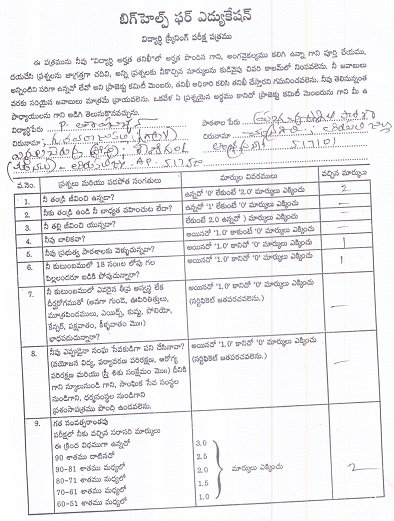 బిగ్‌హెల్ప్ ఫర్ ఎడ్యుకేషన్
విద్యార్థి స్క్రీనింగ్ పరీక్ష పత్రము
ఈ పత్రమును నీవు "విద్యార్థి అర్హత తనిఖీ"లో అర్హత పొందిన గాని, అంగవైకల్యము కలిగి ఉన్నా గాని పూర్తి చేయుము,
దయచేసి ప్రశ్నలను జాగ్రత్తగా చదివి, అన్ని ప్రశ్నలకు నీకొచ్చిన మార్కులను కుడివైపు చివరి కాలమ్‌లో నింపవలెను. నీ జవాబులు
అన్నింటిని సరిగా ఉన్నవో లేవో అని ప్రాజెక్టు కమిటీ మెంబరు, తనిఖీ అధికారి కలిసి తనిఖీ చేస్తారని గమనించవలెను. నీవు తెలిసున్నంత
వరకు సరియైన జవాబులు మాత్రమే వ్రాయవలెను. ఒకవేళ ఏ ప్రశ్నయైన అర్థము కానిచో ప్రాజెక్టు కమిటీ మెంబరును గాని మీ ఉ
పాధ్యాయులను గాని అడిగి తెలుసుకొనవచ్చును.
విద్యార్థిపేరు P.
పాఠశాల పేరు
చిరునామా
చిరునామా
517101
A.P. 51725
వ.నెం. ప్రశ్నలు మరియు పరపోత సంగతులు మార్కుల వివరములు వచ్చిన మార్కులు
1. నీ తండ్రి జీవించి ఉన్నడా? ఉన్నచో '0' లేకుంటే '2.0' మార్కులు ఎక్కించు 2
2. నీకు తండ్రి ఉండి నీ బాధ్యత వహించుట లేదా? ఉన్నచో '1' లేకుంటే '0' మార్కులు ఎక్కించు —
3. నీ తల్లి జీవించి యున్నదా? లేకుంటే 2.0 ఉన్నచో ) మార్కులు ఎక్కించు —
4. నీవు బాలికవా? అయినచో '1.0' కాకుంటే '0' మార్కులు ఎక్కించు 1
5. నీవు ప్రభుత్వ పాఠశాలకు వెళ్ళుచున్నావా? అయినచో '1.0' కానిచో '0' మార్కులు ఎక్కించు 1
6. నీ కుటుంబములో 18 సం॥ల లోపు గల
పిల్లలందరూ బడికి పోవుచున్నారా? అయినచో '1.0' కానిచో '0' మార్కులు ఎక్కించు 1
7. నీ కుటుంబములో ఎవరైన తీవ్ర అస్వస్థ లేక
దీర్ఘరోగముతో (అనగా గుండె, ఊపిరితిత్తులు,
మూత్రపిండములు, ఎయిడ్స్, కుష్ఠు, పోలియో,
కేన్సర్, పక్షవాతం, కీళ్ళవాతం మొ॥)
భాధపడుచున్నారా?
అయినచో '1.0' కానిచో '0' మార్కులు ఎక్కించు
(సర్టిఫికెట్ జతపరచవలెను.) —
8. నీవు ఎప్పుడైనా సంఘ సేవకుడిగా పని చేసినావా?
(వయోజన విద్య, పర్యావరణ పరిరక్షణ, ఆరోగ్య
పరిరక్షణ మరియు స్త్రీ శిశు సంక్షేమం మొ॥) దీనికి
గాని స్కూలునుండి గాని, సాంఘిక సేవ సంస్థల
నుండిగాని, ధర్మసంస్థల నుండిగాని
ప్రశంసాపత్రము పొంది ఉండవలెను.
అయినచో '1.0' కానిచో '0' మార్కులు ఎక్కించు
(సర్టిఫికెట్ జతపరచవలెను.) —
9. గత సంవత్సరాంతపు
పరీక్షలో నీకు వచ్చిన సరాసరి మార్కులు
ఈ క్రింది విధముగా ఉన్నచో
90 శాతము దాటినచో 3.0
90-81 శాతము మధ్యలో 2.5
80-71 శాతము మధ్యలో 2.0
70-61 శాతము మధ్యలో 1.5
60-51 శాతము మధ్యలో 1.0
మార్కులు ఎక్కించు 2